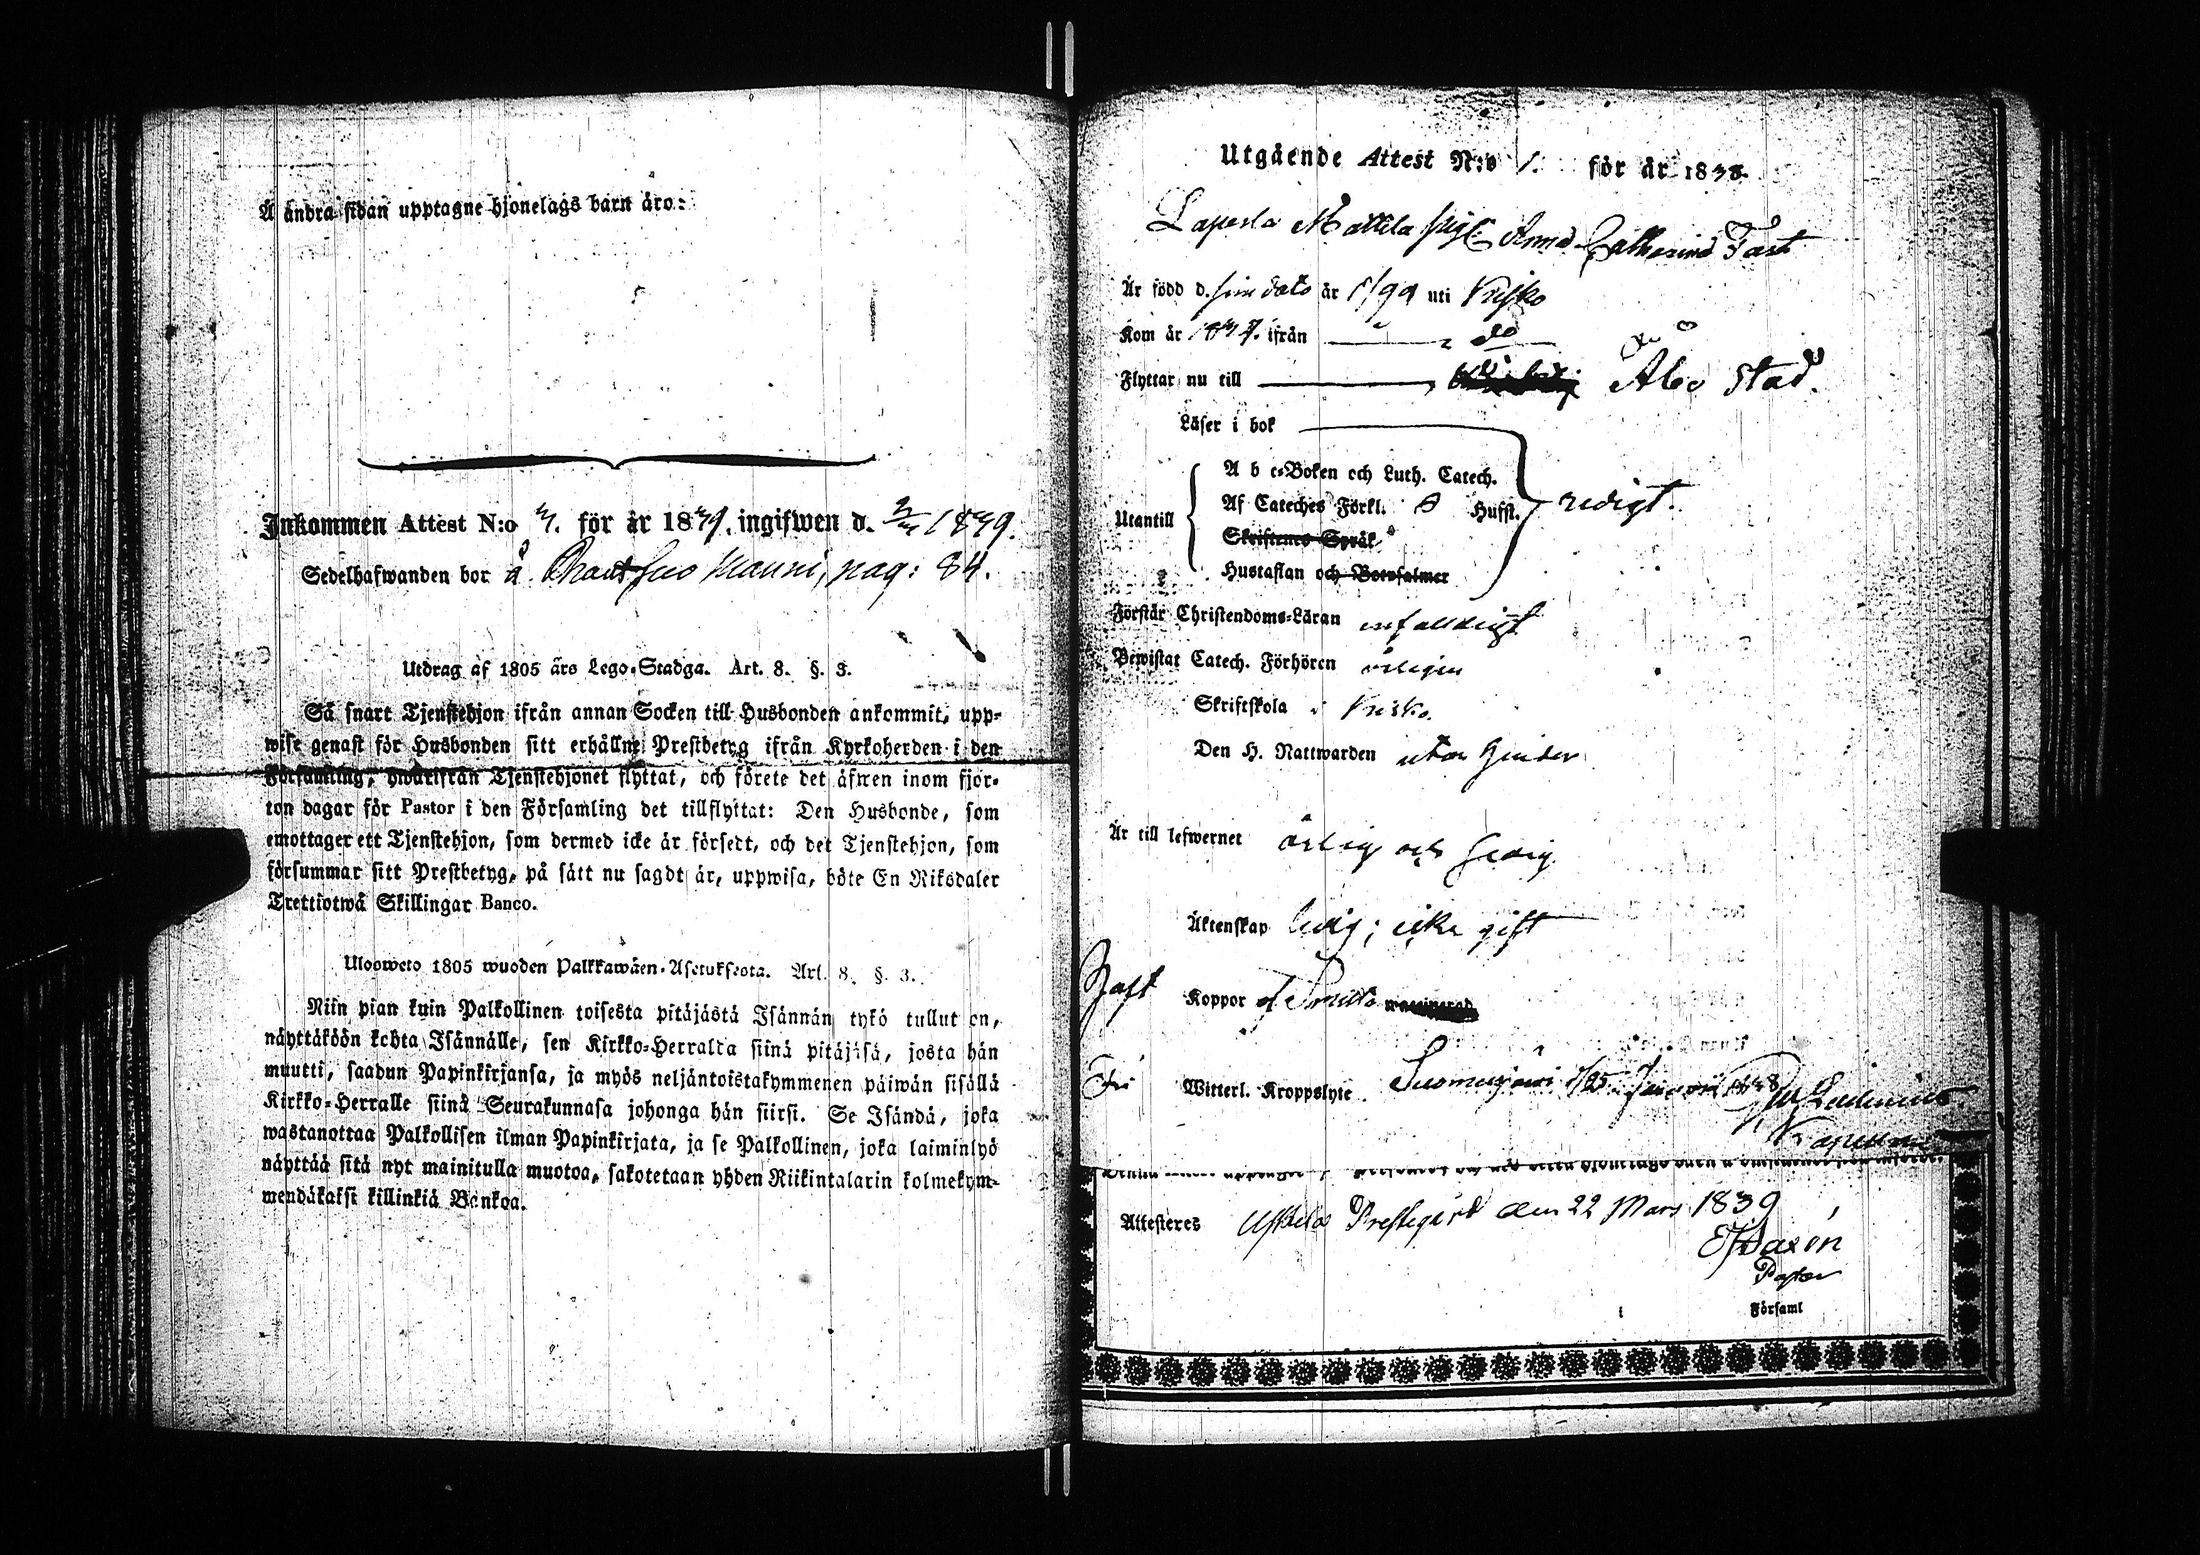 Å andra sidan upptagne hjonelags barn äro:
Inkommen Attest N:o 7. för år 1839. ingifwen d. 1839.
Sedelhafwanden bor å Nanni, pag: 84.
Utdrag af 1805 års Lego-Stadga. Art. 8. §. 3.
Så snart Tjenstehjon ifrån annan Socken till Husbonden ankommit, upp-
wise genast för Husbonden sitt erhållne Prestbetyg ifrån Kyrkoherden i den
Församling, hwarifrån Tjenstehjonet flyttat, och förete det äfwen inom fjor-
ton dagar för Pastor i den Församling det tillflyttat: Den Husbonde, som
emottager ett Tjenstehjon, som dermed icke är försedt, och det Tjenstehjon, som
försummar sitt Prestbetyg, på sätt nu sagdt är, uppwisa, böte En Riksdaler
Trettiotwå Skillingar Banco.
Uloosweto 1805 wuoden Palkkawäen-Asetuksesta. Art. 8. §. 3.
Niin pian kuin Palkollinen toisesta pitäjästä Isännän tykö tullut on,
näyttäköön kohta Isännälle, sen Kirkko-Herralda siinä pitäjäsä, josta hän
muutti, saadun Papinkirjansa, ja myös neljäntoistakymmenen päiwän sisällä
Kirkko-Herralle siinä Seurakunnasa johonga hän siirsi. Se Isändä, joka
wastanottaa Palkollisen ilman Papinkirjata, ja se Palkollinen, joka laiminlyö
näyttää sitä nyt mainitulla muotoa, sakotetaan yhden Riikintalarin kolmekym-
mendäkaksi killinkiä Bankoa.
Utgående Attest N:o 1. för år 1838.
Laperla Mattila pig. Anna Catharina Fast
Är född d. sine dato år 1799 uti Kisko
Kom år 1837. ifrån do
Flyttar nu till Åbo Stad.
Läser i bok
Utantill
A b c-Boken och Luth. Catech.
Af Cateches Förkl. Hufst. redigt.
Skriftenes Språk
Hustaflan och Botpsalmer
Förstår Christendoms-Läran enfaldigt
Bewistat Catech. Förhören årligen
Skriftskola i Kisko.
Den H. Nattwarden utan hinder
Är till lefwernet ärlig och sedig
Äktenskap ledig; icke gift
Haft Koppor
Fri Witterl. Kroppslyte Suomusjärvi
Attesteres Uskela Prestegård den 22 Mars 1839
Pastor
Församl